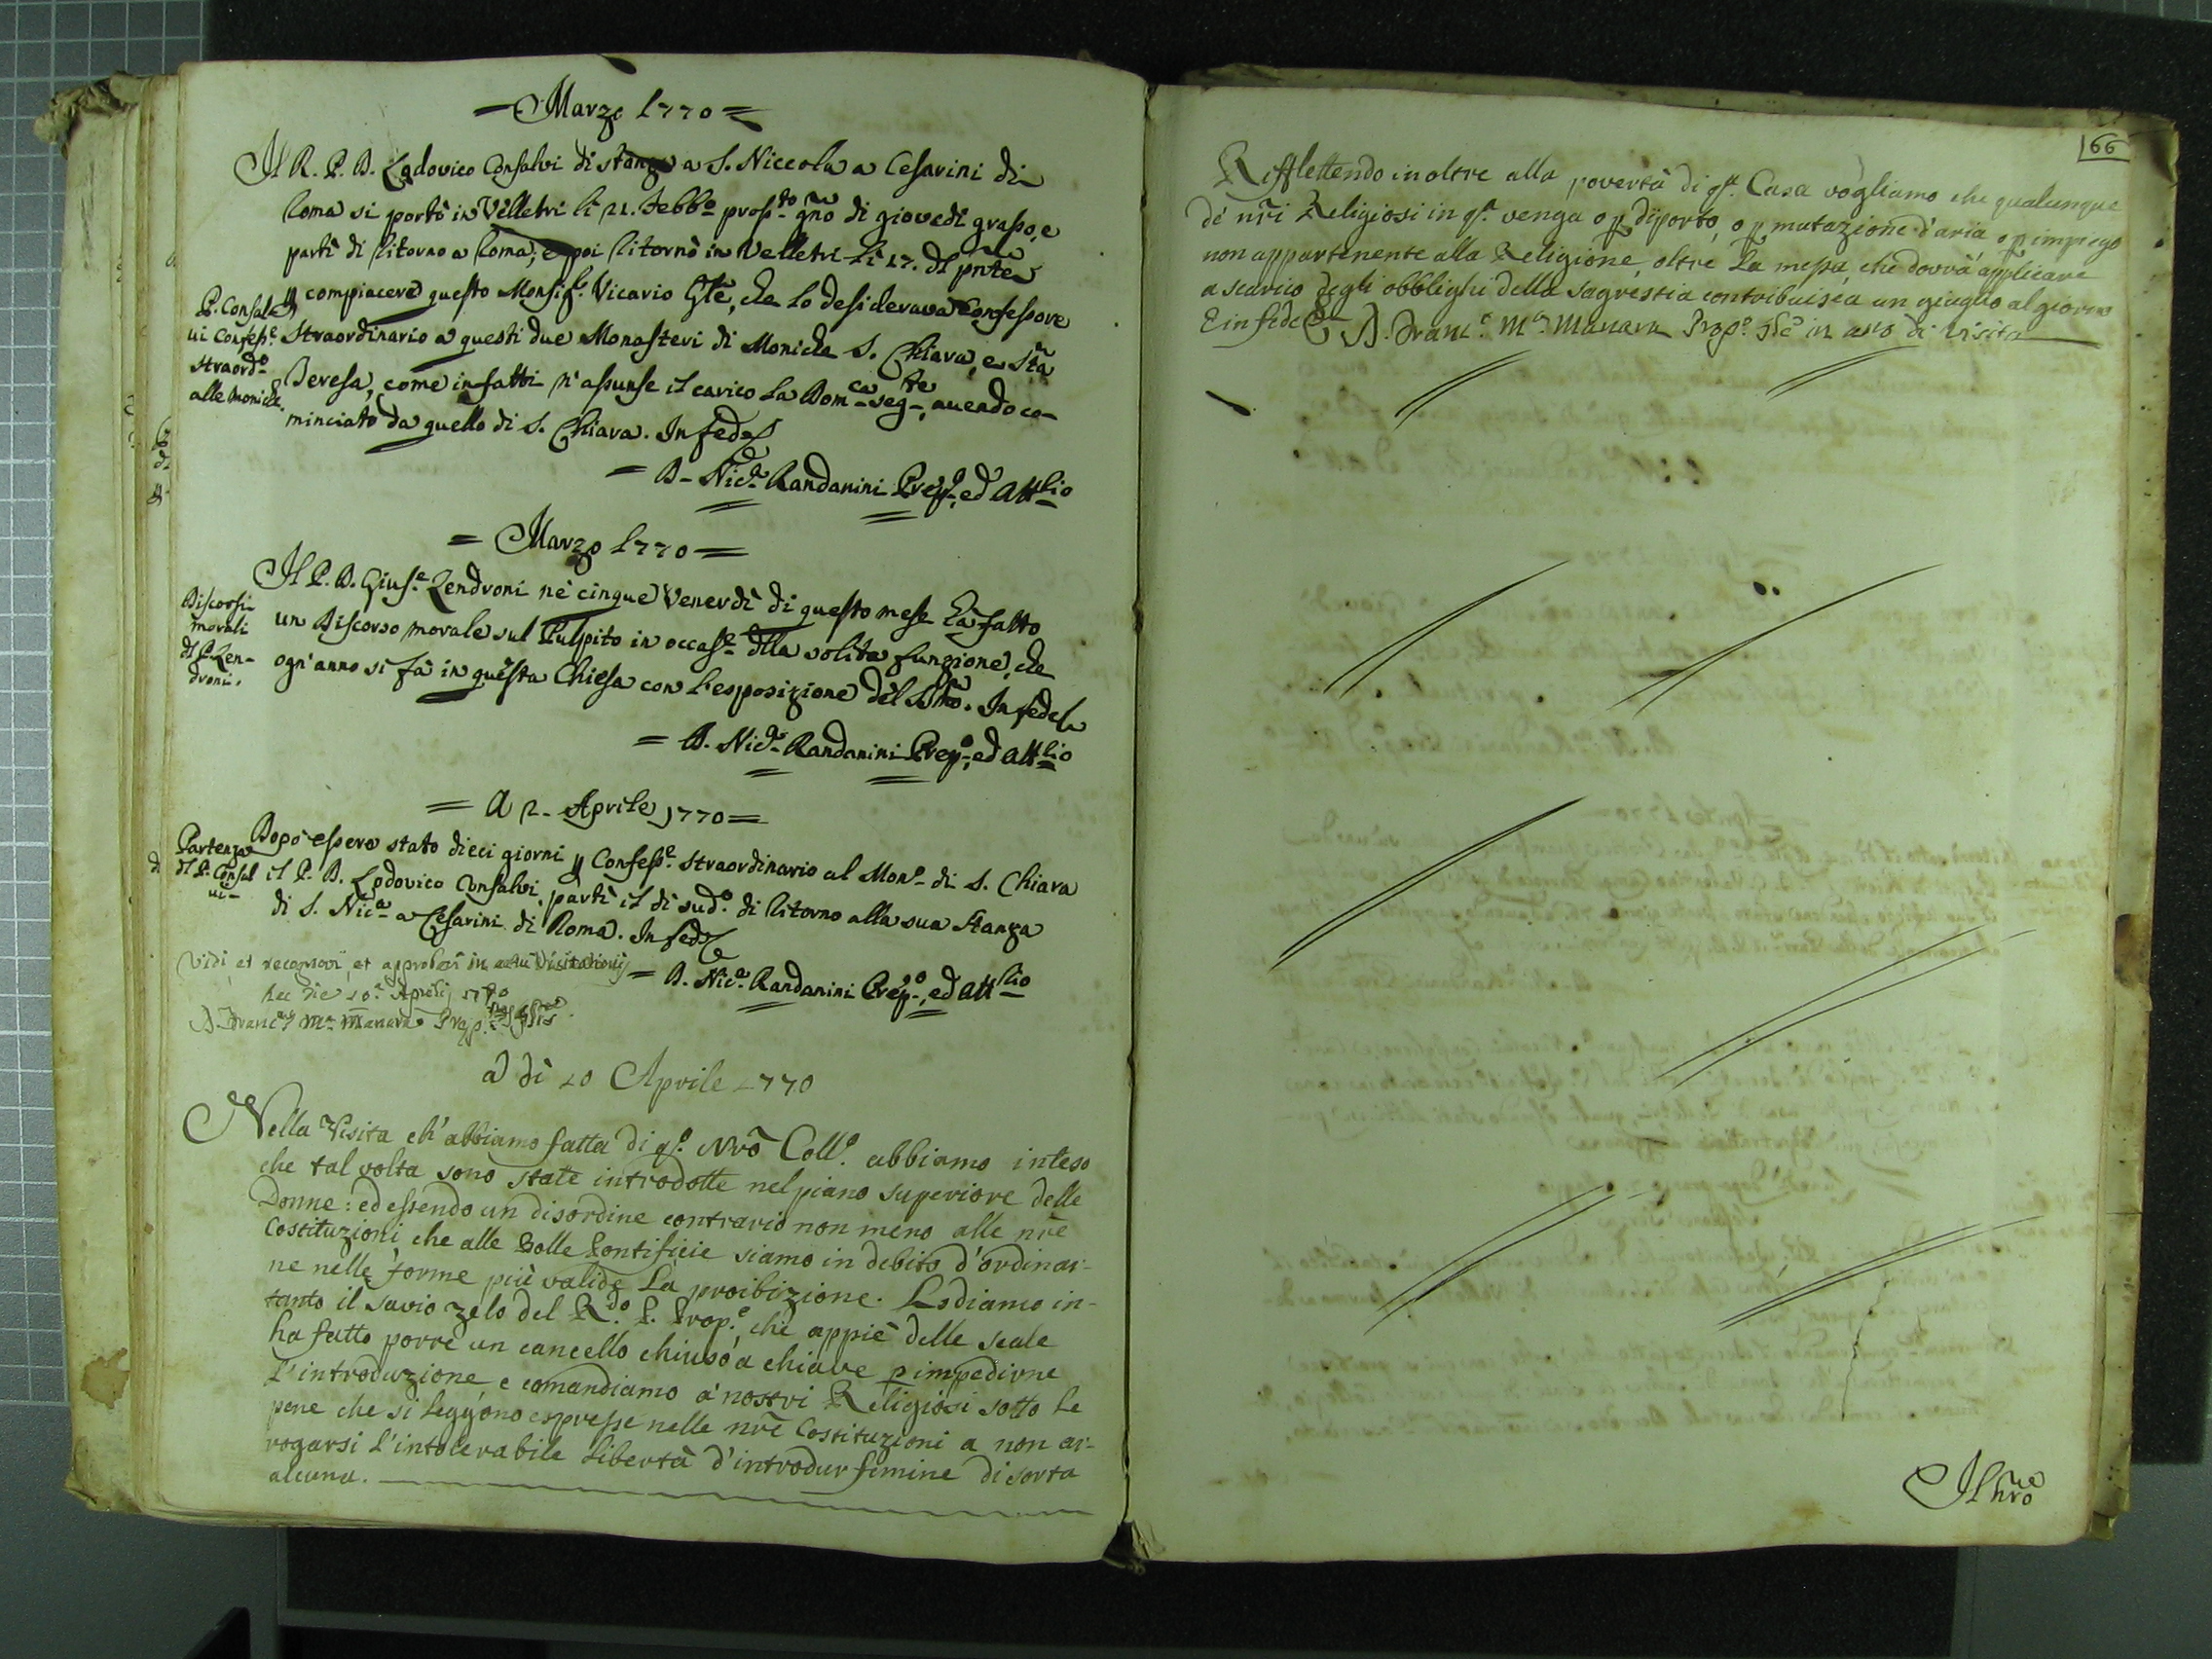 = Marzo 1770 =
Il R. P. D. Lodovico Consalvi di stanza a S. Niccola a Cesarini di
Roma si portò in Velletri li 21. Febb.o pros.to gño di giovedì grasso, e
partì di ritorno a Roma; e poi ritornò in Velletri li 17. dl pñte
compiacere questo Monsig.r Vicario Gñle, che lo desiderava Confessore
P. Consal
ui Confess.e
straord.o
alle monich.
Straordinario a questi due Monasteri di Moniche S. Chiara, e Sta
Teresa, come infatti n'assunse il carico la Dom.ca seg.te, avendo co-
minciato da quello di S. Chiara. In fede
= D. Nic.a Randanini Prep.o, ed Att.rio
= Marzo 1770 =
Il P. D. Gius.e Zendroni ne' cinque Venerdì di questo mese hà fatto
Discorsi
morali
dl P. Zen-
droni.
un Discorso morale sul Pulpito in occas.e dlla solita funzione, che
ogn'anno si fà in questa Chiesa con l'esposizione del SSmo. In fede
= D. Nic.a Randanini Prep.o, ed Att.rio
= A 2. Aprile 1770 =
Partenza
dl P. Consal
ui
Dopo essere stato dieci giorni Confess.e straordinario al Mon.o di S. Chiara
il P. D. Lodovico Consalvi, partì il dì sud.o di ritorno alla sua stanza
di S. Nic.a a Cesarini di Roma. In fede
= D. Nic.a Randanini Prep.o, ed Att.rio
Vidi et recognovi, et approbavi in actu Visitationis
hac die 10.a Aprilis 1770
D. Franc.s M.a Manara Prep.
A dì 10 Aprile 1770
Nella Visita ch'abbiamo fatta di q.o Nrõ Coll.o abbiamo inteso
che tal volta sono state introdotte nel piano superiore delle
Donne: ed essendo un disordine contrario non meno alle nrẽ
Costituzioni che alle Bolle Pontificie siamo in debito d'ordinar-
ne nelle forme più valide la proibizione. Lodiamo in-
tanto il savio zelo del R.do P. Prop.o, che appiè delle scale
ha fatto porre un cancello chiuso a chiave p impedirne
l'introduzione, e comandiamo a' nostri Religiosi sotto le
pene che si leggono espresse nelle nrẽ Costituzioni a non ar-
rogarsi l'intolerabile libertà d'introdur femine di sorta
alcuna.
66
Rifflettendo inoltre alla povertà di q.a Casa vogliamo che qualunque
de' nrĩ Religiosi in q.a venga o p diporto, o p mutazione d'aria o p impiego
non appartenente alla Religione, oltre la messa, che dovrà applicare
a scarico degli obblighi della sagrestia contribuisca un giuglio al giorno
E in fede D. Franc.o M.a Manara Prop.o in atto di visita
Il nro